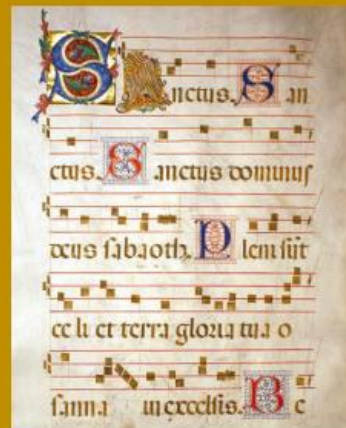 S A nctus. S an
ctus. S anctus dominus
deus sabaoth. P leni sūt
ce li et terra gloria tua o
sanna in excelsis. B e